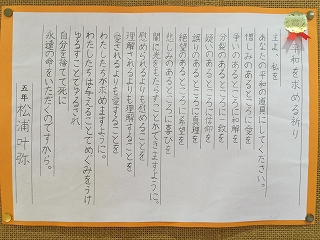 平和を求める祈り
主よ、私を
あなたの平和の道具にしてください。
憎しみのあるところに愛を
争いのあるところに和解を
分裂のあるところに一致を
疑いのあるところに信仰を
誤りのあるところに真理を
絶望のあるところに希望を
悲しみのあるところに喜びを
闇に光をもたらすことができますように。
慰められるよりも慰めることを
理解されるよりも理解することを
愛されるよりも愛することを
わたしたちが求めますように。
わたしたちは与えることでめぐみをうけ
ゆるすことでゆるされ
自分を捨てて死に
永遠の命をいただくのですから。
五年 松浦叶弥